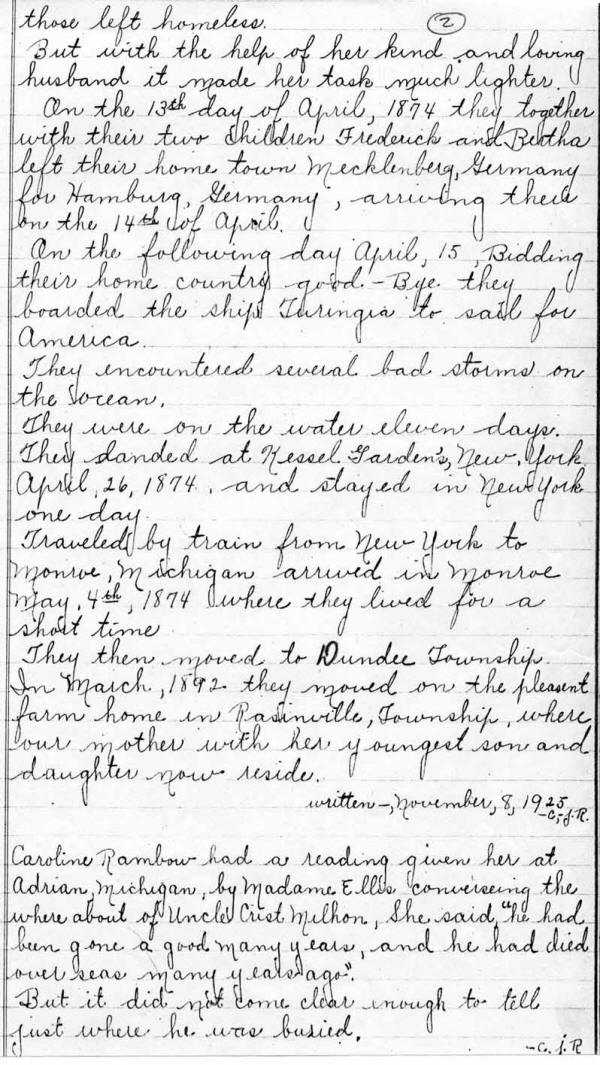 those left homeless. 2
But with the help of her kind and loving
husband it made her task much lighter.
On the 13th day of April, 1874 they together
with their two children Frederick and Bertha
left their home town Mecklenberg, Germany
for Hamburg, Germany, arriving there
on the 14th of April.
On the following day April, 15, Bidding
their home country good-Bye they
boarded the ship Turingia to sail for
America.
They encountered several bad storms on
the ocean.
They were on the water eleven days.
They landed at Kessel Garden's, New, York
April, 26, 1874. and stayed in New York
one day.
Traveled by train from New York to
Monroe, Michigan arrived in Monroe
May, 4th, 1874 where they lived for a
short time
They then moved to Dundee Township.
In March, 1892 they moved on the pleasent
farm home in Raisinville, Township, where
our mother with her youngest son and
daughter now reside.
written-, November, 8, 1925
-C. J. R.
Caroline Rambow had a reading given her at
Adrian, Michigan, by Madame Ellis converseing the
where about of Uncle Crist Milhon, She said, "he had
been gone a good many years, and he had died
over seas many years ago".
But it did not come clear enough to tell
just where he was buried.
-C. J. R